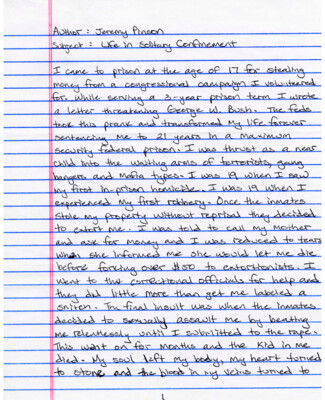 Author: Jeremy Pinson
Subject: Life in Solitary Confinement
I came to prison at the age of 17 for stealing
money from a congressional campaign I volunteered
for. While serving a 3-year prison term I wrote
a letter threatening George W. Bush. The feds
took this prank and transformed my life forever
sentencing me to 21 years in a maximum
security federal prison. I was thrust as a near
child into the waiting arms of terrorists, gang
bangers and Mafia types. I was 19 when I saw
my first in-prison homicide. I was 19 when I
experienced my first robbery. Once the inmates
stole my property without reprisal they decided
to extort me. I was told to call my Mother
and ask for money and I was reduced to tears
when she informed me she would let me die
before forking over $50 to extortionists. I
went to the correctional officials for help and
they did little more than get me labeled a
snitch. The final insult was when the inmates
decided to sexually assault me by beating
me relentlessly until I submitted to the rape.
This went on for months and the kid in me
died. My soul left my body, my heart turned
to stone and the blood in my veins turned to
1